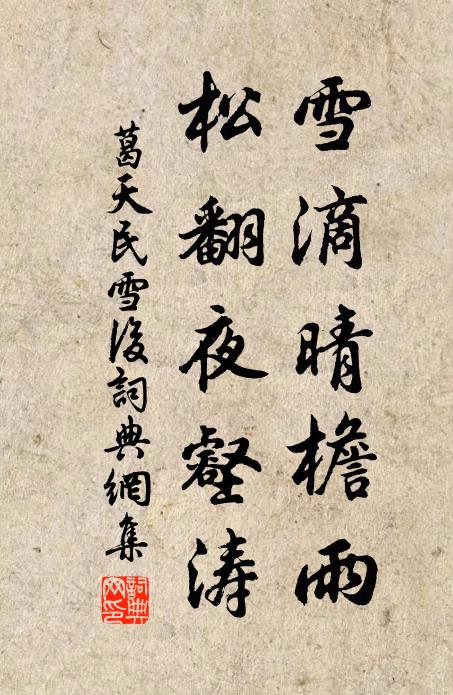 雪滴晴檐雨
松翻夜壑濤
葛天民雪後詞典網集
詞典網印